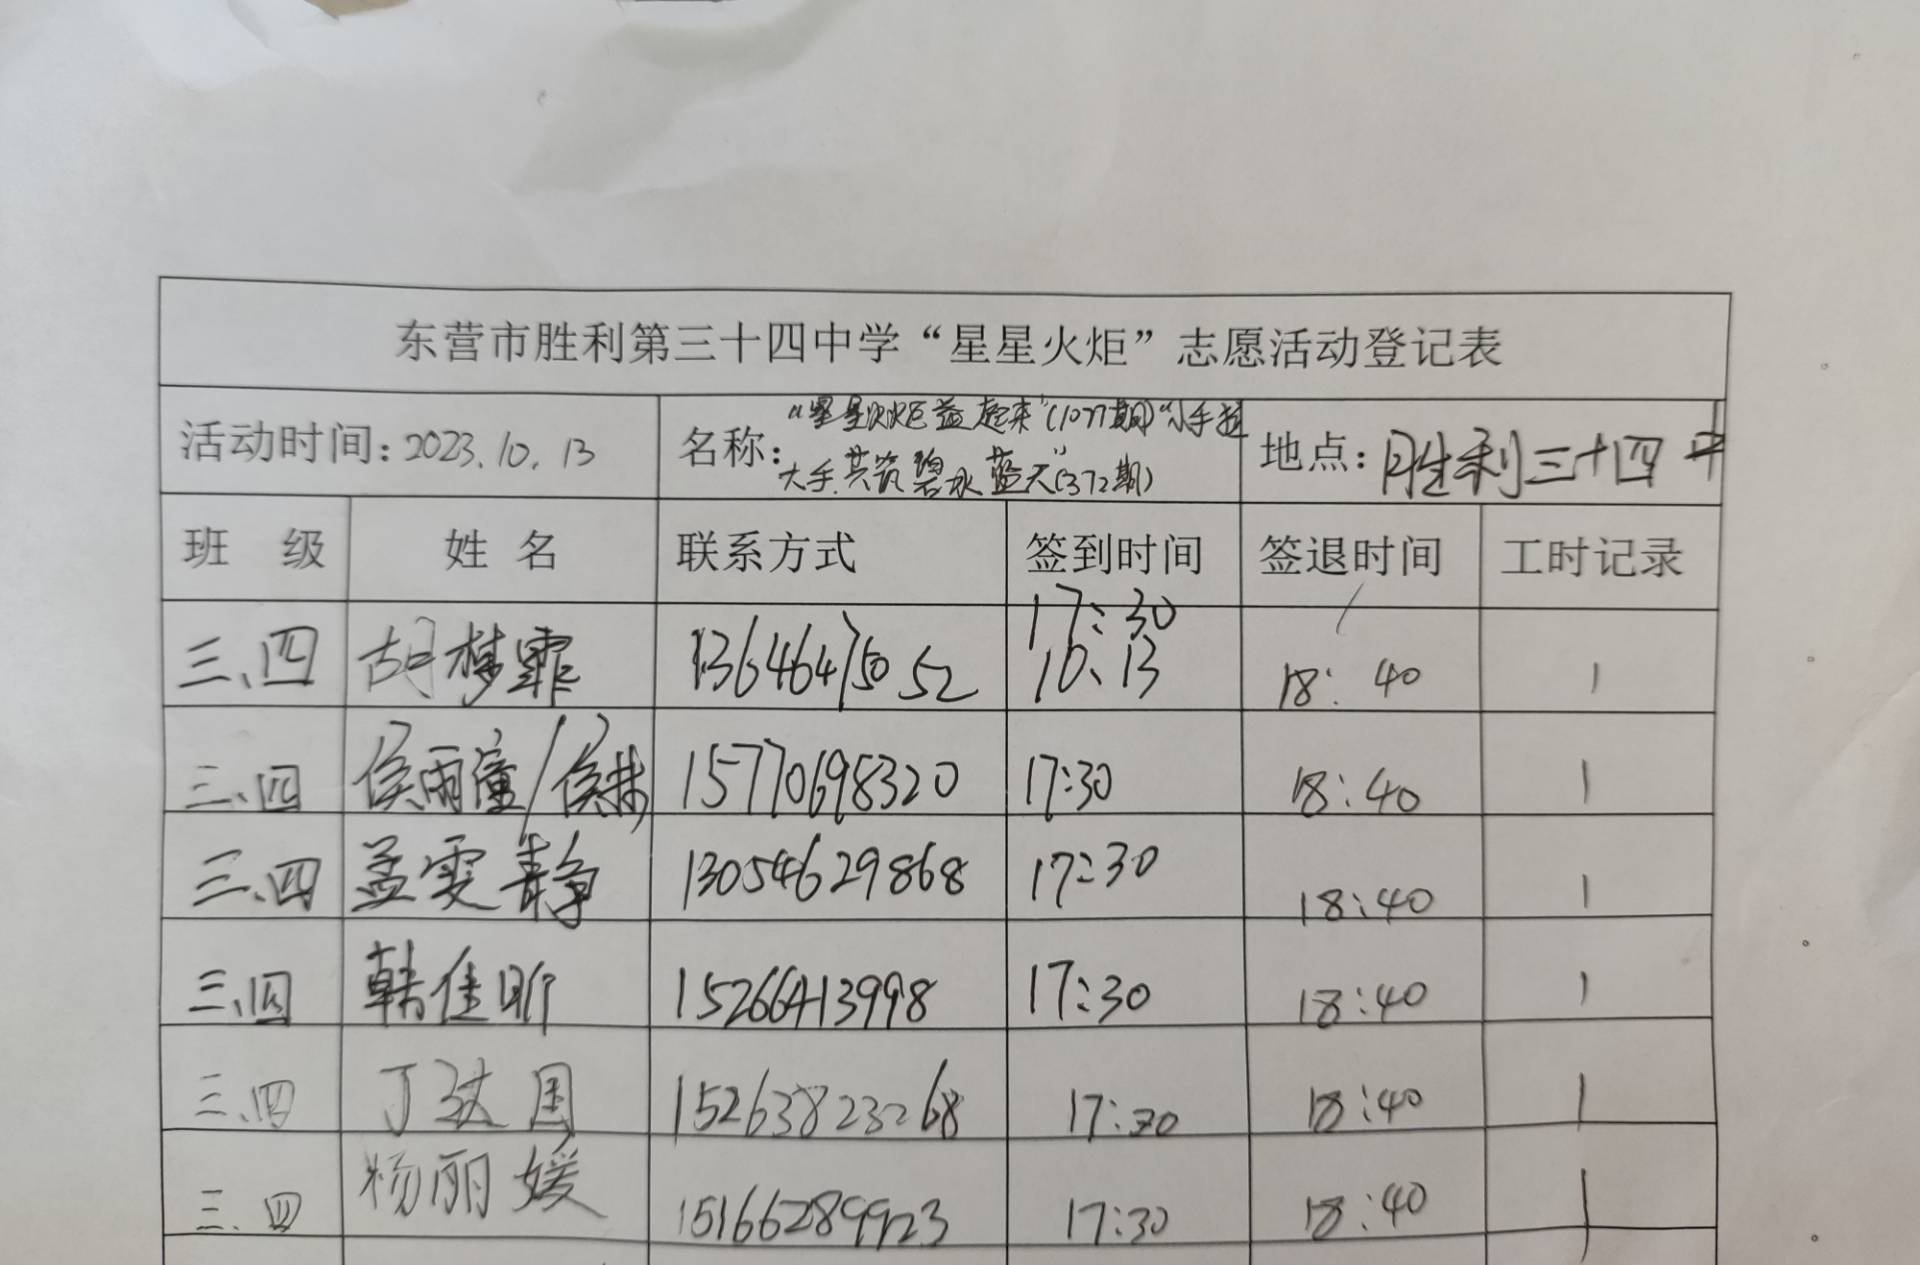 东营市胜利第三十四中学“星星火炬”志愿活动登记表
活动时间：2023.10.13 名称：“星星火炬益起来”(1077期)“小手拉 地点：胜利三十四中
大手.共筑碧水蓝天”(372期)
班 级 姓 名 联系方式 签到时间 签退时间 工时记录
17:30
三、四 胡梦霏 13646475052 10、13 18:40 1
三、四 侯雨潼/侯 15770698320 17:30 18:40 1
三、四 孟雯静 13054629868 17:30 18:40 1
三、四 韩佳昕 15266413998 17:30 18:40 1
三、四 丁 国 15263823268 17:30 18:40 1
三、四 杨丽媛 15166289923 17:30 18:40 1